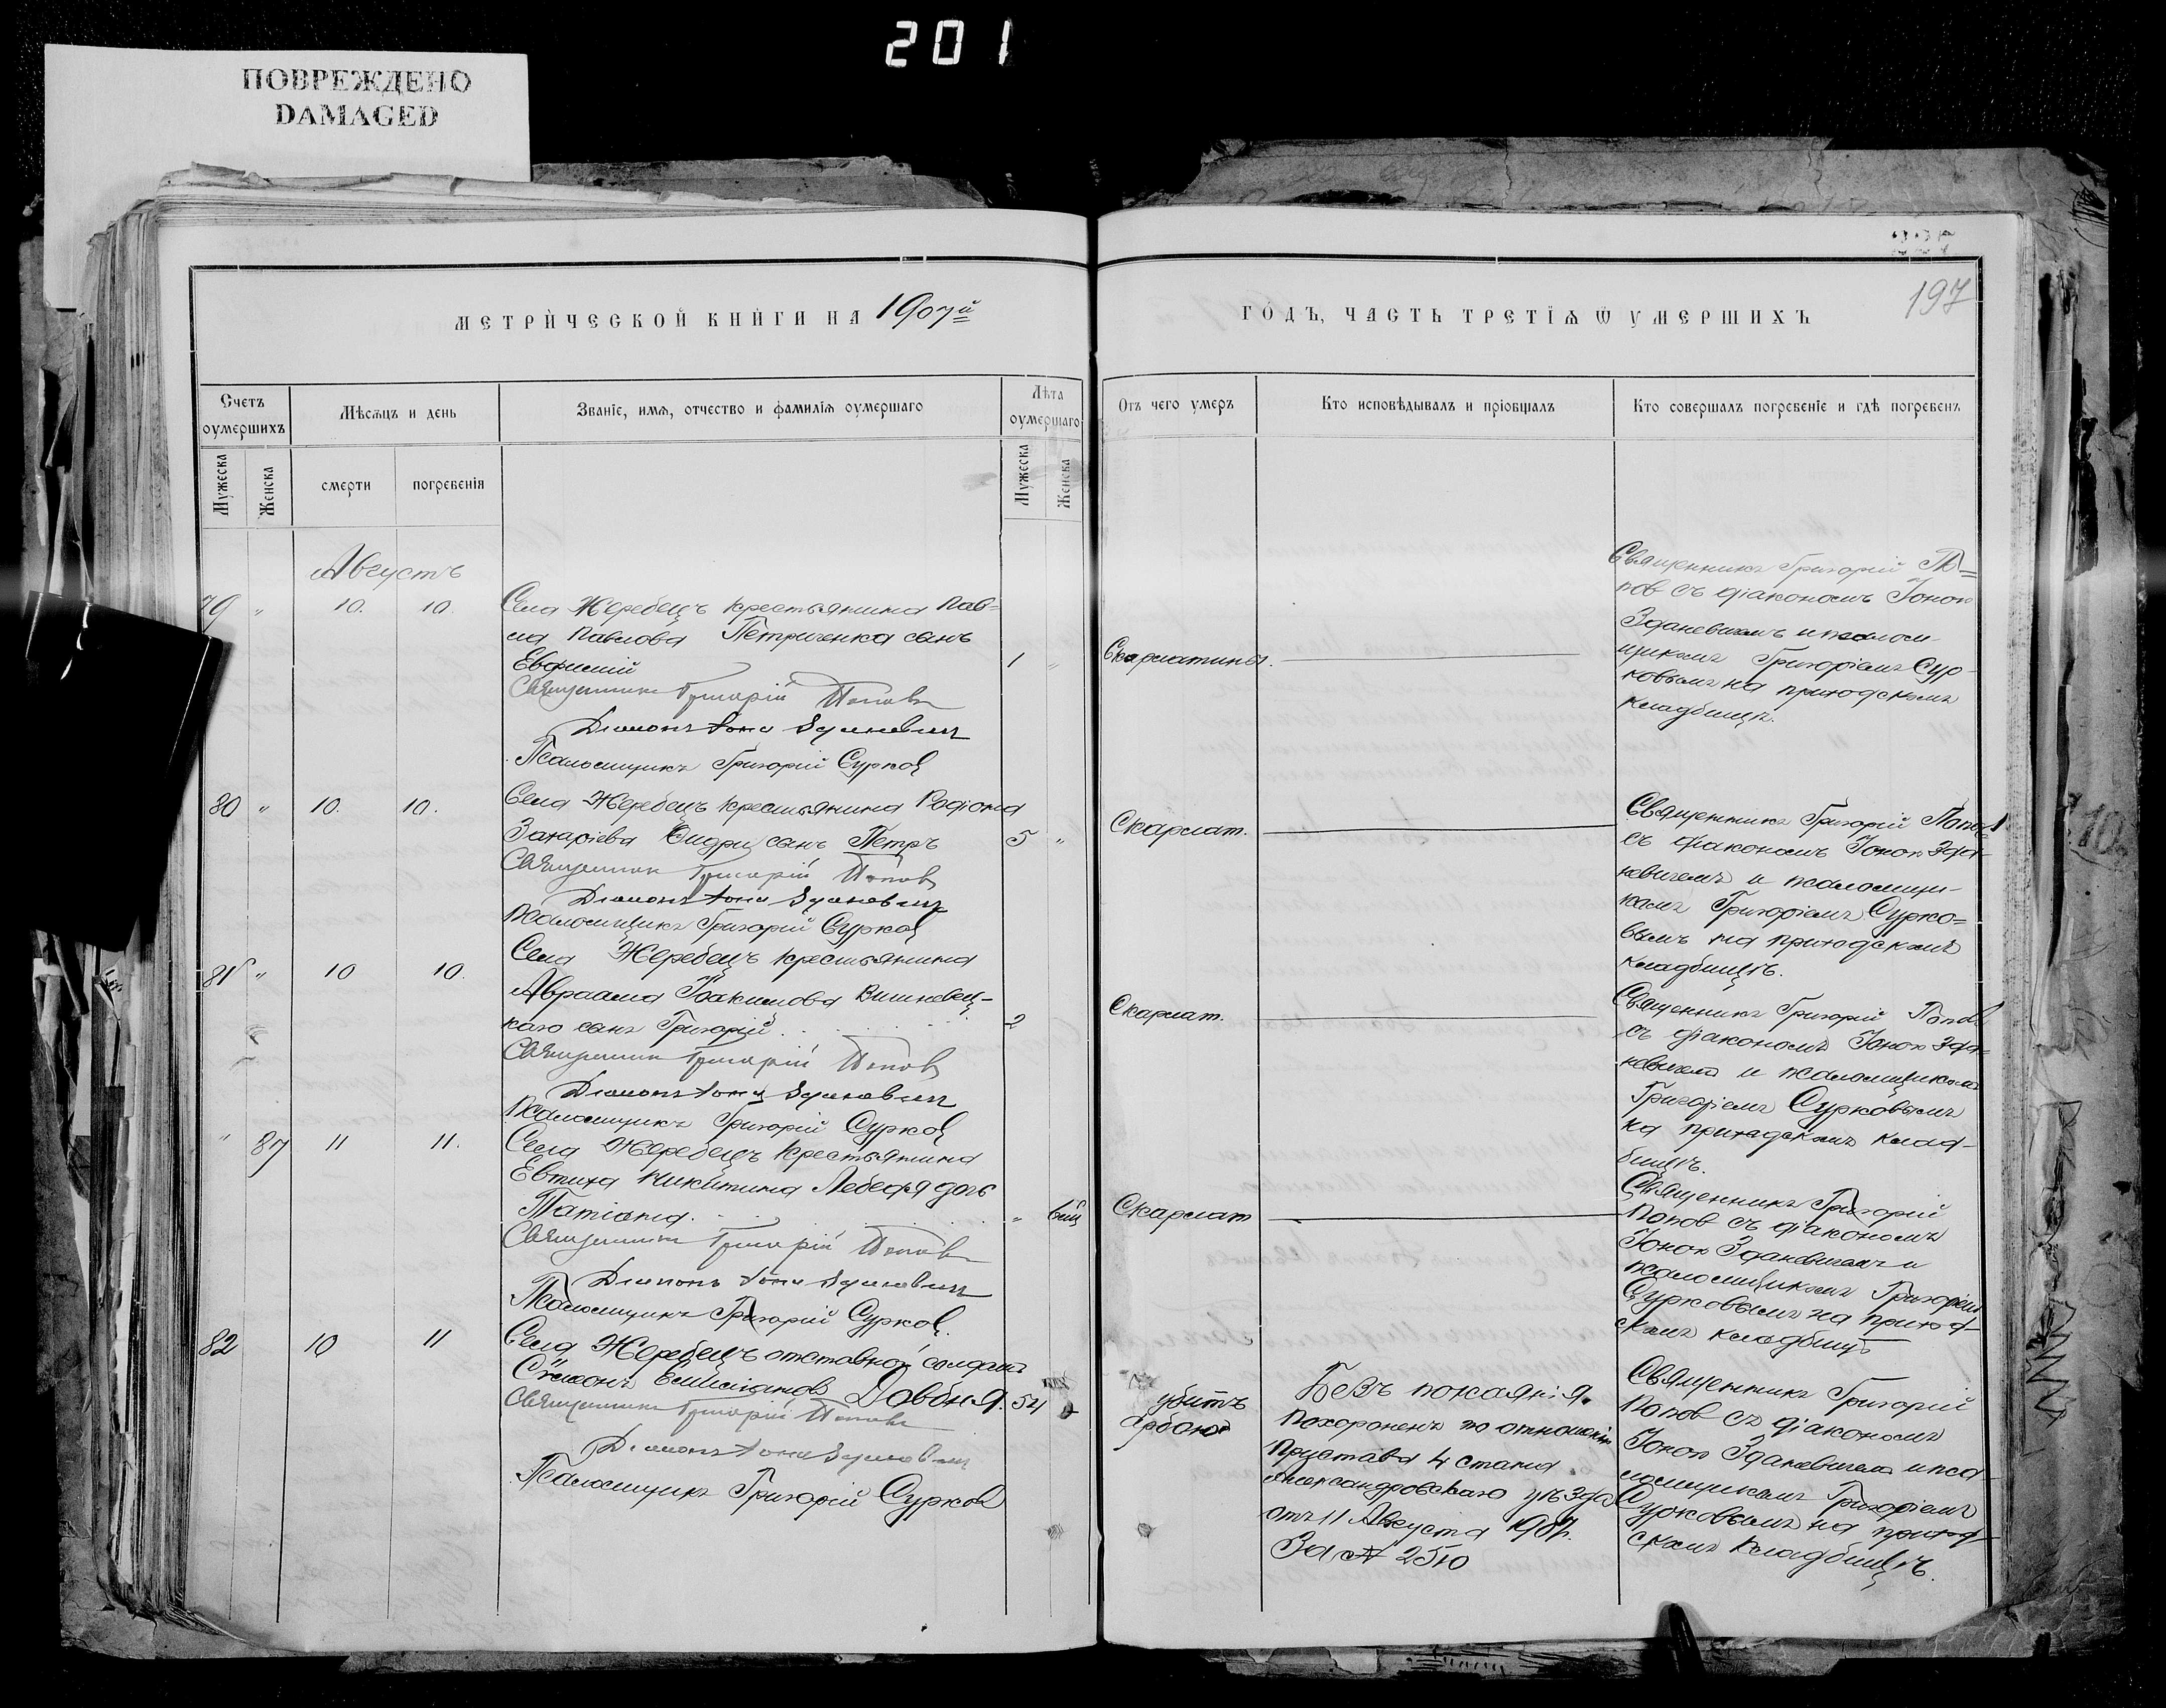 201
ПОВРЕЖДЕНО
DAMAGED
197
МЕТРИЧЕСКОЙ КНИГИ НА 1907й
ГОДЪ, ЧАСТЬ ТРЕТІѦ Ѿ УМЕРШИХЪ
Счетъ оумершихъ
Мѣсѧцъ и день
Званіе, имѧ, отчество и фамиліѧ оумершаго
Лѣта оумершаго
Отъ чего умеръ
Кто исповѣдывалъ и пріобщалъ
Кто совершалъ погребеніе и гдѣ погребенъ
Мужеска
Женска
смерти
погребенія
Мужеска
Женска
Августъ
79 " 10. 10.
Села Жеребецъ крестьянина Пав=
ла Павлова Петриченка сынъ
Евфимій
1 "
Священникъ Григорій Поповъ
Діаконъ Іона Зданевичъ
Псаломщикъ Григорій Сурков
Скарлатины.
Священникъ Григорій По=
пов съ діакономъ Іоною
Зданевичемъ и псалом-
щикомъ Григоріемъ Сур-
ковымъ на приходскомъ
кладбищѣ.
80 " 10. 10.
Села Жеребецъ крестьянина Родіона
Захаріева Сидри сынъ Петръ
5 "
Священник Григорій Попов
Діаконъ Іона Зданевичъ
Псаломщикъ Григорій Сурков
Скарлат.
Священникъ Григорій Попов
съ діакономъ Іоною Зда-
невичемъ и псаломщи-
комъ Григоріемъ Сурко=
вымъ на приходскомъ
кладбищѣ.
81 " 10 10.
Села Жеребецъ крестьянина
Авраама Іоакимова Вишневец-
каго сынъ Григорій
2
Священник Григорій Попов
Діаконъ Іона Зданевичъ
Псаломщикъ Григорій Сурков
Скарлат.
Священникъ Григорій Попов
съ діакономъ Іоною Зда=
невичемъ и псаломщикомъ
Григоріемъ Сурковымъ
на приходскомъ клад-
бищѣ.
" 87 11 11.
Села Жеребецъ крестьянина
Евтиха Никитина Лебедя дочь
Татіана.
" 6м
Священник Григорій Попов
Діаконъ Іона Зданевичъ
Псаломщикъ Григорій Сурков.
Скарлат
Священникъ Григорій
Попов съ діакономъ
Іоною Зданевичемъ и
псаломщикомъ Григоріем
Сурковымъ на приход-
скомъ кладбищѣ
82 10 11
Села Жеребецъ отставной солдатъ
Сѵмеонъ Емиліанов Довбня.
54
Священникъ Григорій Поповъ
Діаконъ Іона Зданевич
Псаломщикъ Григорій Сурков
убитъ
арбою
Безъ покаянія.
Похороненъ по отношенію
Пристава 4 стана
Александровскаго уѣзда
отъ 11 Августа 1907г.
За № 2510
Священникъ Григорій
Попов съ діакономъ
Іоною Зданевичемъ и пса-
ломщикомъ Григоріемъ
Сурковымъ на приход-
скомъ кладбищѣ.